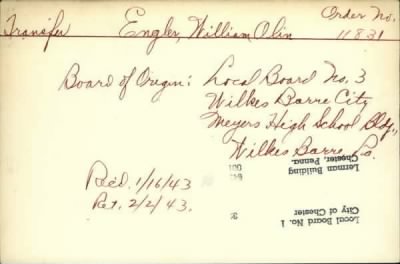 Transfer Engler, William Olin Order No.
11831
Board of Origin: Local Board No. 3
Wilkes Barre City
Meyers High School Bldg.,
Wilkes Barre Pa.
Rec'd. 1/16/43
Ret. 2/2/43.
Local Board No. 1
City of Chester
Lerman Building
Chester, Penna.